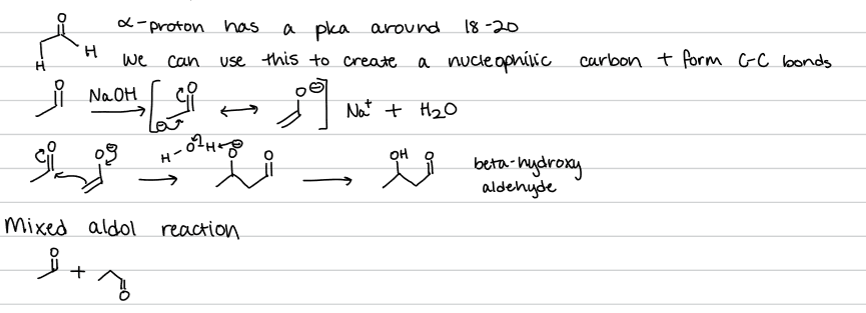 O α-proton has a pka around 18-20
H H We can use this to create a nucleophilic carbon + form C-C bonds
O NaOH O ⊖ ↔ O⊖ Na⁺ + H₂O
O O⊖ H-O-H ⊖O O OH O beta-hydroxy
aldehyde
Mixed aldol reaction
O + O